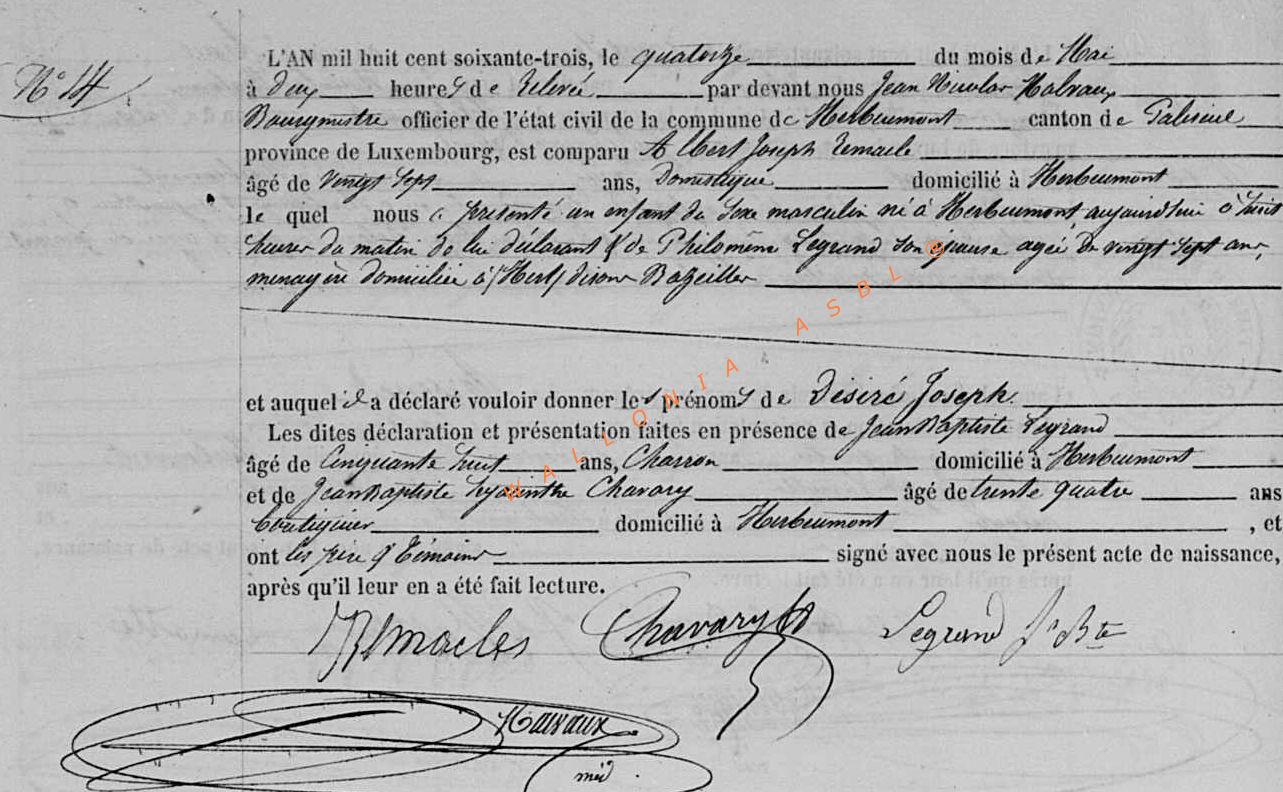 N° 14
L'AN mil huit cent soixante-trois, le quatorze du mois de Mai
à deux heures de relevée par devant nous Jean Nicolas Malvaux
Bourgmestre officier de l'état civil de la commune de Herbeumont canton de Paliseul
province de Luxembourg, est comparu Albert Joseph Remacle
âgé de vingt sept ans, Domestique domicilié à Herbeumont
le quel nous a présenté un enfant du sexe masculin né à Herbeumont aujourd'hui à huit
heures du matin de lui déclarant & de Philomène Legrand son épouse agée de vingt sept ans,
menagère domiciliée à (Herb) disons Bazeilles
et auquel il a déclaré vouloir donner les prénoms de Désiré Joseph.
Les dites déclaration et présentation faites en présence de Jean Baptiste Legrand
âgé de Cinquante huit ans, Charron domicilié à Herbeumont
et de Jean Baptiste Hyacinthe Chavary âgé de trente quatre ans
boutiquier domicilié à Herbeumont , et
ont les père & témoins signé avec nous le présent acte de naissance,
après qu'il leur en a été fait lecture.
Remacles Chavary Legrand Jn Bte
Malvaux
méd.
WALLONIA ASBL ®